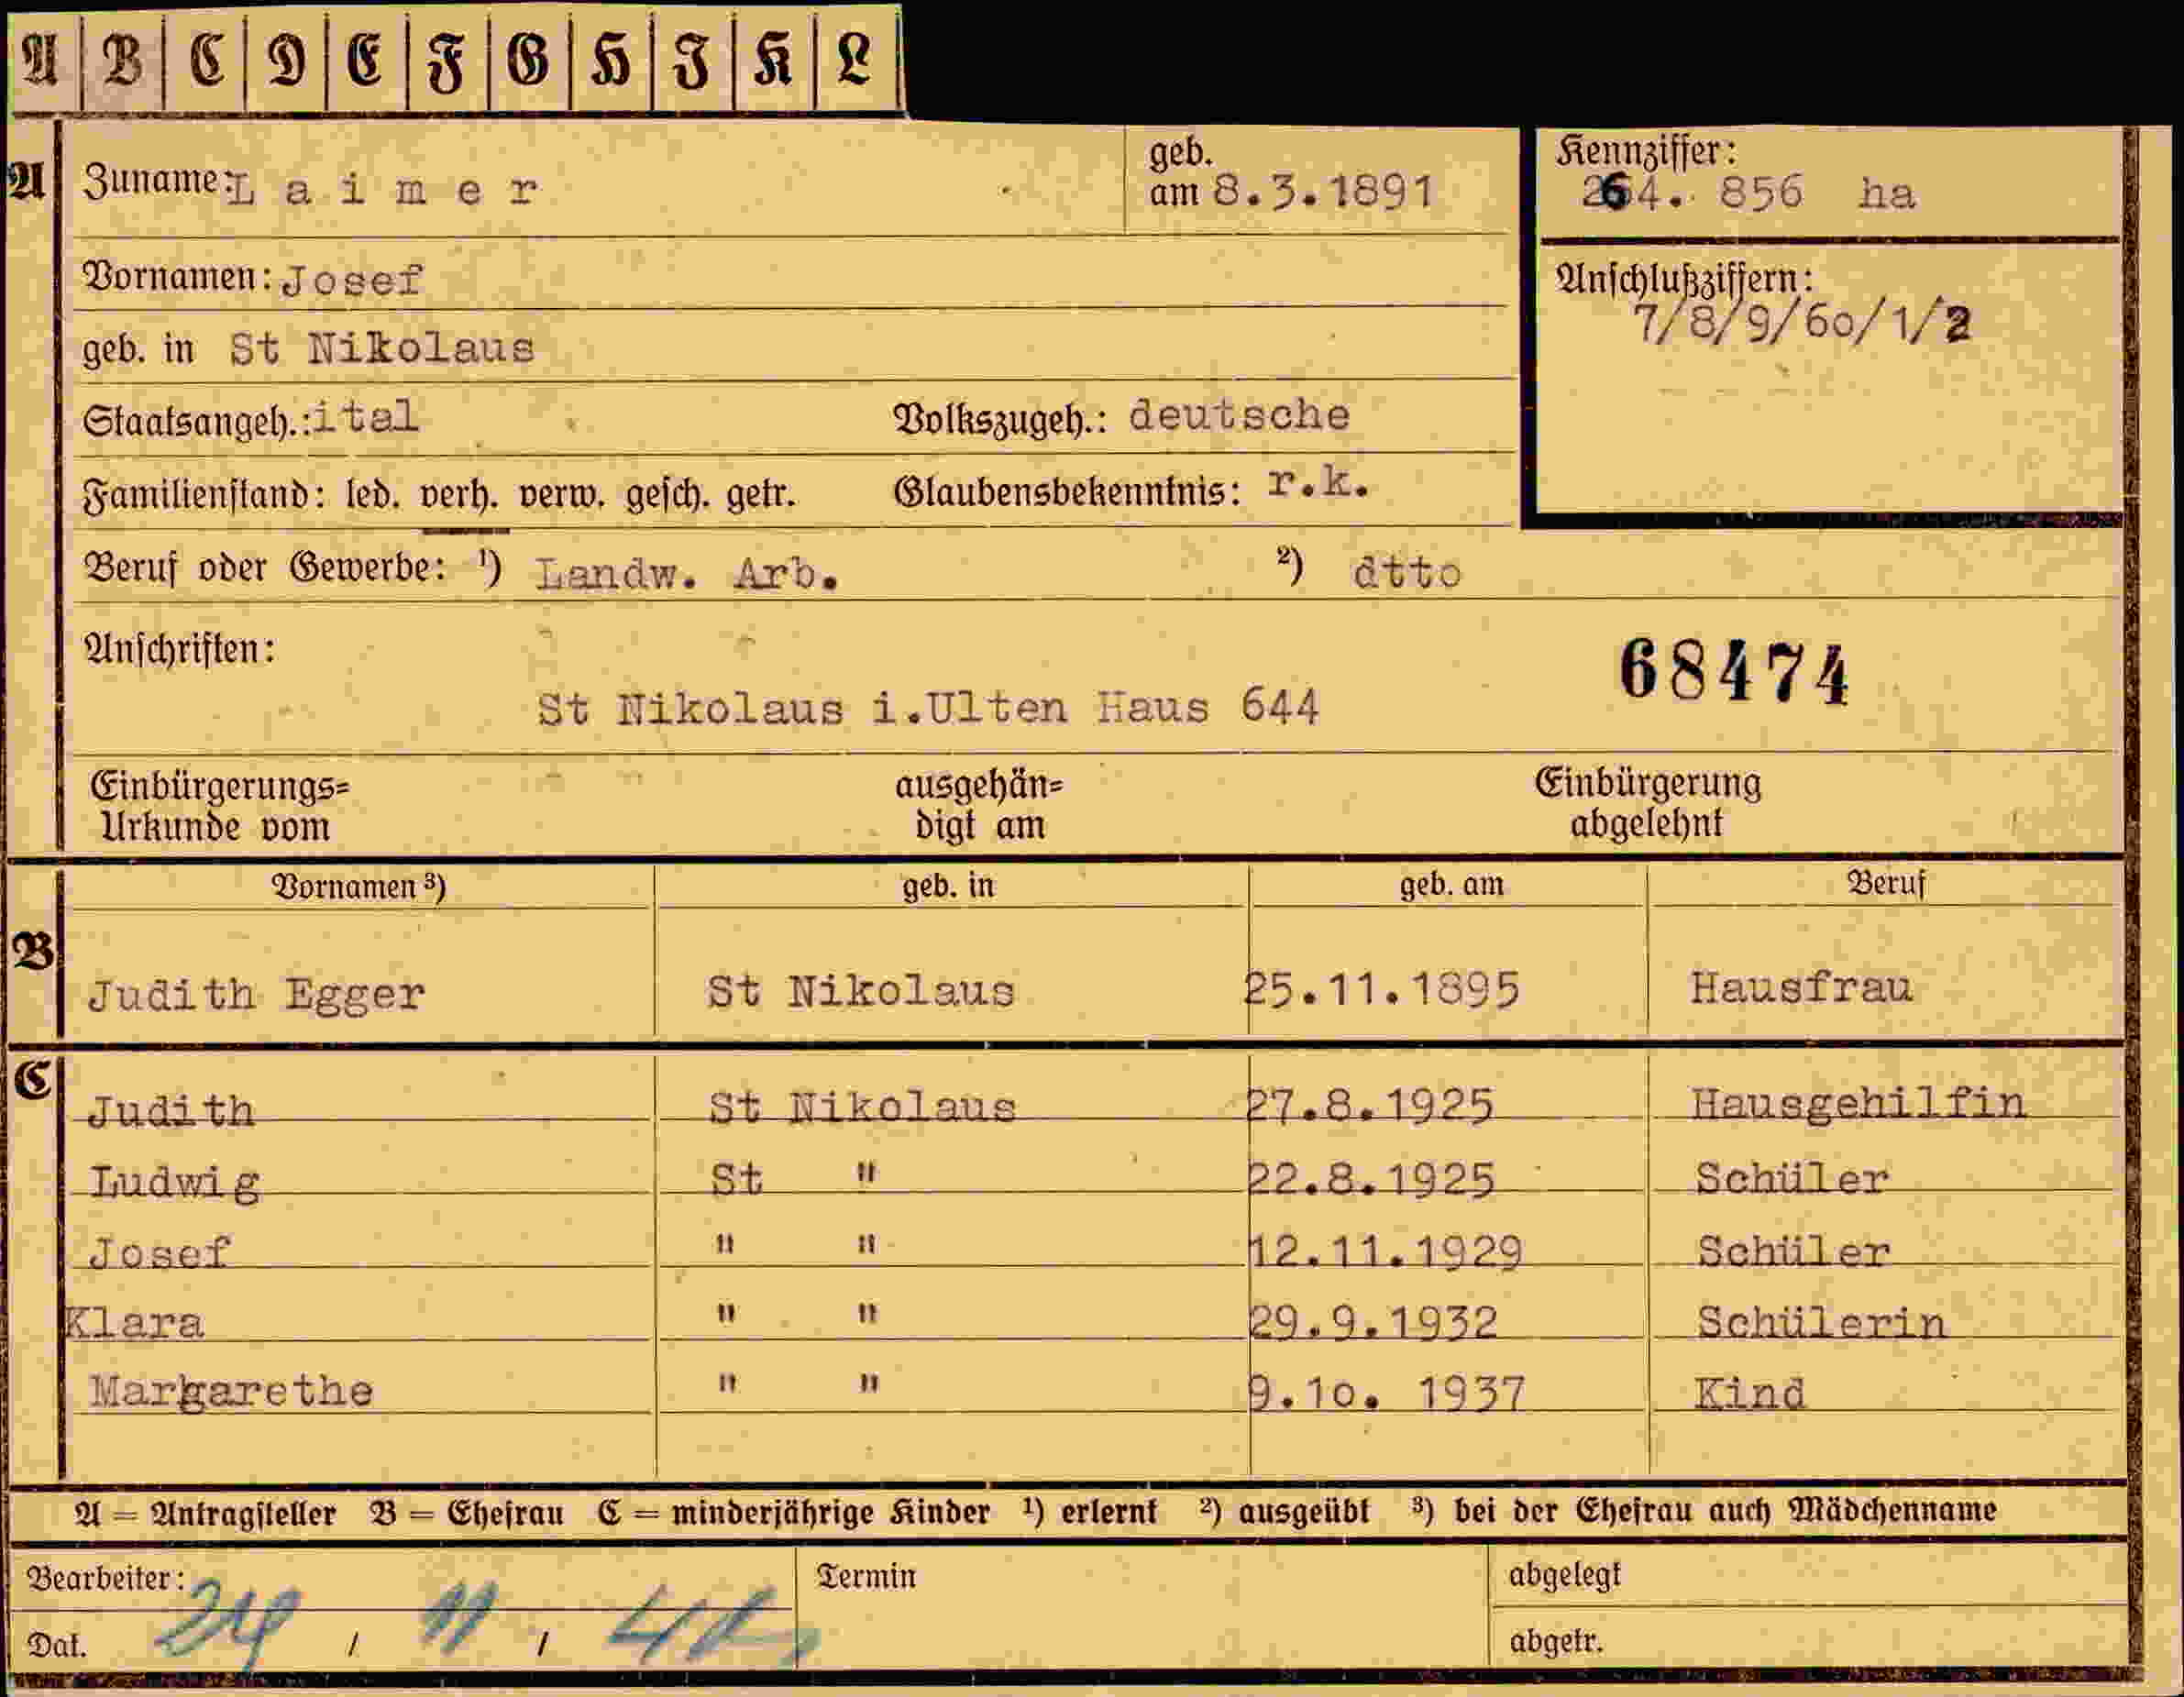 A B C D E F G H I K L
A Zuname: Laimer geb. am 8.3.1891 Kennziffer: 264. 856 ha
Vornamen: Josef Anschlußziffern: 7/8/9/60/1/2
geb. in St Nikolaus
Staatsangeh.: ital Volkszugeh.: deutsche
Familienstand: led. verh. verw. gesch. getr. Glaubensbekenntnis: r.k.
Beruf oder Gewerbe: ¹) Landw. Arb. ²) dtto
Anschriften: 68474
St Nikolaus i.Ulten Haus 644
Einbürgerungs= ausgehän= Einbürgerung
Urkunde vom digt am abgelehnt
Vornamen ³) geb. in geb. am Beruf
B
Judith Egger St Nikolaus 25.11.1895 Hausfrau
C
Judith St Nikolaus 27.8.1925 Hausgehilfin
Ludwig St " 22.8.1925 Schüler
Josef " " 12.11.1929 Schüler
Klara " " 29.9.1932 Schülerin
Margarethe " " 9.10. 1937 Kind
A = Antragsteller B = Ehefrau C = minderjährige Kinder ¹) erlernt ²) ausgeübt ³) bei der Ehefrau auch Mädchenname
Bearbeiter: Termin abgelegt
Dat. / 11 / abgetr.